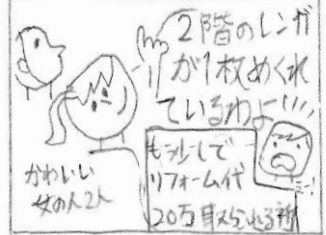 2階のレンガ
が1枚めくれ
ているわよ!!!
かわいい
女の人2人
もう少しで
リフォーム代
20万取られる裕